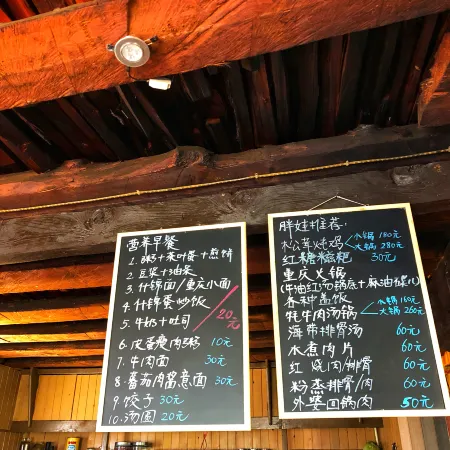 营养早餐
1. 粥+茶叶蛋+煎饼
2. 豆浆+油条
3. 什锦面/重庆小面
4. 什锦蛋炒饭
5. 牛奶+吐司
20元
6. 皮蛋瘦肉粥 10元
7. 牛肉面 30元
8. 番茄肉酱意面 30元
9. 饺子 30元
10. 汤圆 20元
胖娃推荐:
松茸炖鸡 小锅 180元
大锅 280元
红糖糍粑 30元
重庆火锅
(牛油红汤锅底+麻油碟儿)
各种盖饭
牦牛肉汤锅 小锅 160元
大锅 260元
海带排骨汤 60元
水煮肉片 60元
红烧肉/排骨 60元
粉蒸排骨/肉 60元
外婆回锅肉 50元